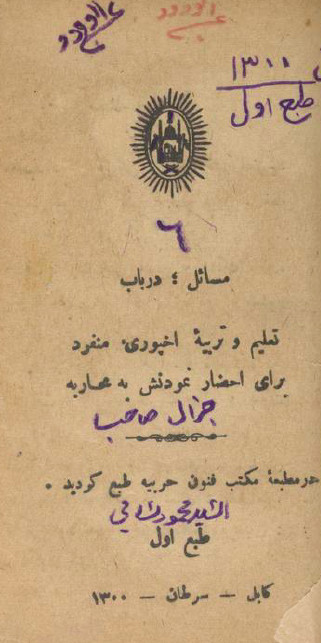 ١٣٠٠
طبع اول
٦
مسائل ؛ درباب
تعلیم و تربیهٔ اخپوری، منفرد
برای احضار نمودنش به محاربه
جنرال صاحب
درمطبعهٔ مکتب فنون حربیه طبع کردید .
السید محمود
طبع اول
کابل — سرطان — ١٣٠٠